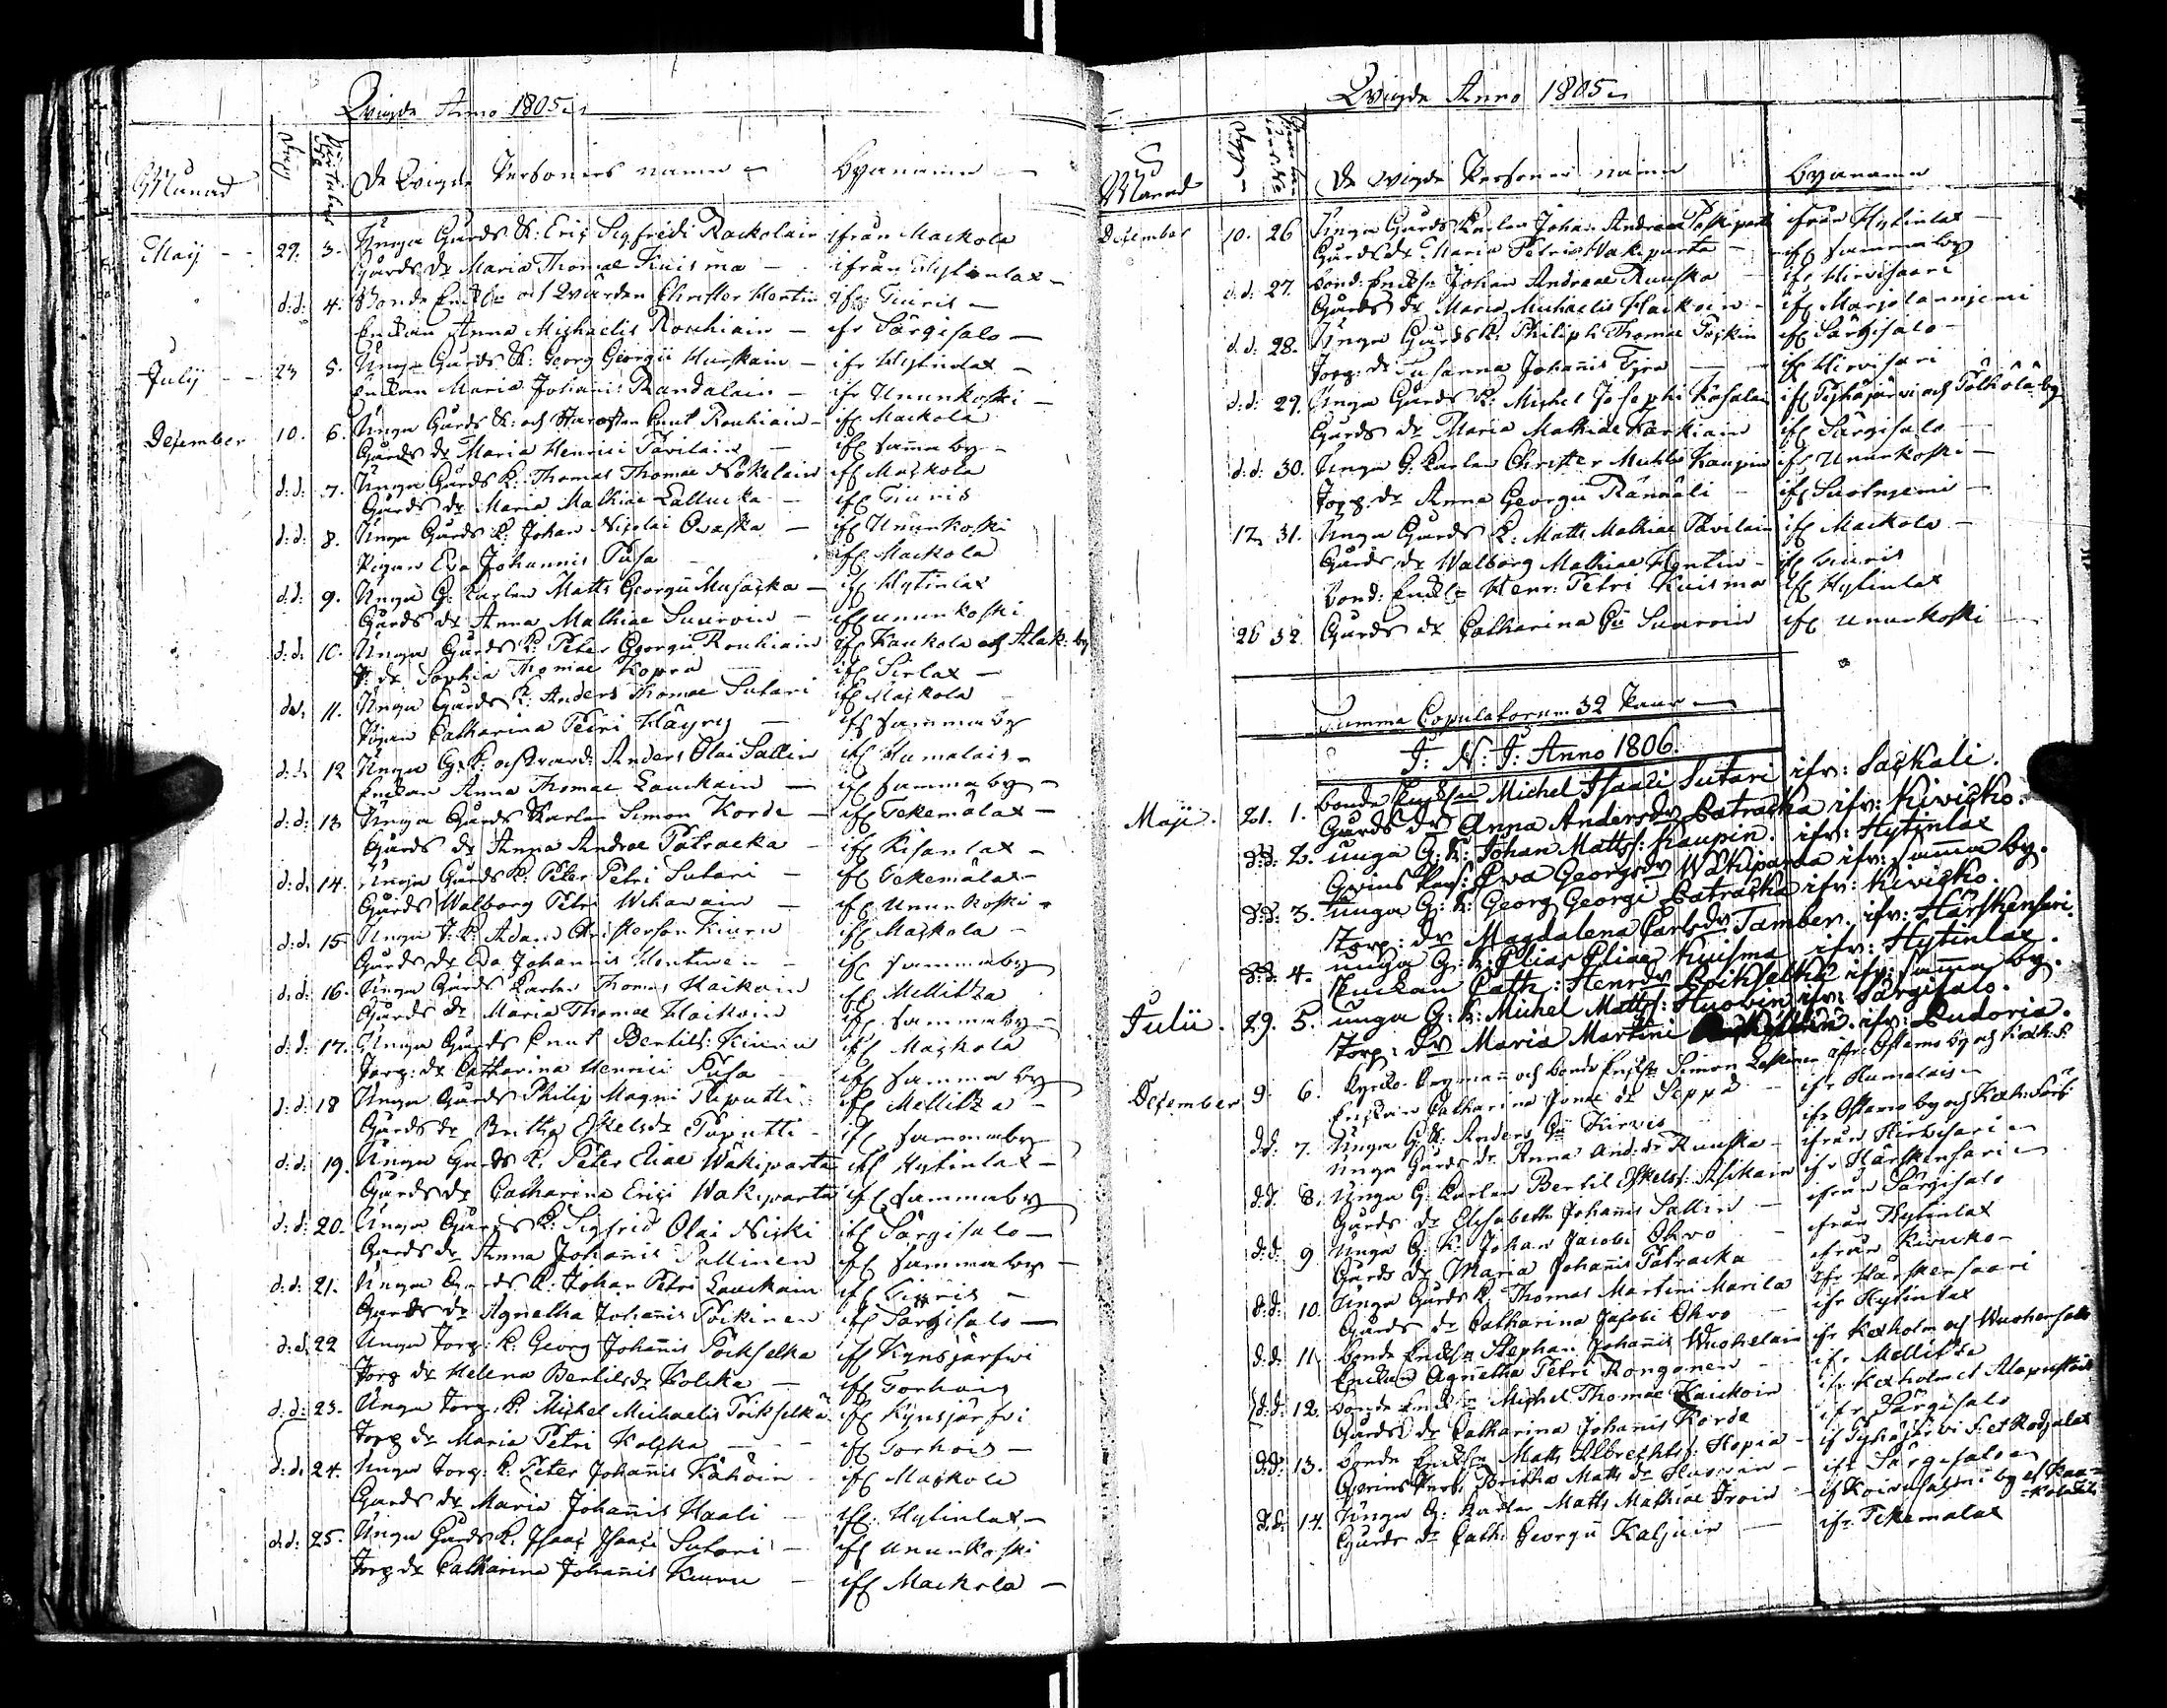 Qvigde Anno 1805
Månad
Dag
De Qvigde Personers namn
Byanamn
Maij 29. 3. Unga Gårds K: Eric Sigfredi Rackolain ifrån Mackola
Gårds dr Maria Thomae Kuisma ifrån Hytinlax
d:d: 4. Bonde Enckl: och Christer Hentin ifr: Tiuris
Enckan Anna Michaelis Rouhiain ifr Särgisalo
Julij 23 5. Unga Gårds K: Georg Georgii Hurskain ifr Hytinlax
Enckan Maria Johanis Randalain ifr Ununkoski
December 10. 6. Unga Gårds K: och Knut Rouhiain ifr Mackola
Gårds dr Maria Henrici Pavilain ifr samma by
d:d: 7. Unga Gårds K: Thomas Thomae Nokelain ifr Mackola
Gårds dr Maria Mathiae Lallucka ifr Tiuris
d:d: 8. Unga Gårds K: Johan Nicolai Ovaska ifr Ununkoski
Pigan Eva Johannis Pusa ifr Mackola
d:d: 9. Unga G: Karlen Matts Georgii Musacka ifr Hytinlax
Gårds dr Anna Mathiae Suuroin ifr Ununkoski
d:d: 10. Unga Gårds K: Peter Georgii Rouhiain ifr Kaukola och Alak: by
T: dr Sophia Thomae Kopra ifr Sirlax
d:d: 11. Unga Gårds K: Anders Thomae Sutari ifr Mackola
Pigan Catharina Petri Häyry ifr samma by
d:d: 12 Unga G: K: och Anders Olai Sallin ifr Humalais
Enckan Anna Thomae Lauckain ifr samma by
d:d: 13 Unga Gårds Karlen Simon Korde ifr Tekemälax
Gårds dr Anna Andrae Patracka ifr Kisanlax
d:d: 14. Unga Gårds K: Peter Petri Sutari ifr Tekemälax
Gårds Walborg Petri Wihavain ifr Ununkoski
d:d: 15 Unga T: K: Adam Christerson Kiuru ifr Mackola
Gårds dr Eva Johannis Hentinen ifr samma by
d:d: 16. Unga Gårds Karlen Thomas Haikoin ifr Mellitza
Gårds dr Maria Thomae Haikoin ifr samma by
d:d: 17. Unga Gårds Knut Bertils: Kiuru ifr Mackola
Torp: dr Catharina Henrici Pusa ifr samma by
d:d: 18 Unga Gårds Philip Magni Tuputti ifr Mellitza
Gårds dr Britha Eskelsdr Tuputti ifr samma by
d:d: 19. Unga Gårds K. Peter Eliae Wäkiparta ifr Hytinlax
Gårds dr Catharina Erici Wakiparta ifr samma by
d:d: 20. Unga Gårds K: Sigfrid Olai Niski ifr Särgisalo
Gårds dr Anna Johannis Pallinen ifr samma by
d:d: 21. Unga Gårds K: Johan Petri Lauckain ifr Tiuris
Gårds dr Agnetha Johanis Pöckinen ifr Särgisalo
d:d: 22 Unga Torp: K: Georg Johannis Poikselka ifr Kynsjärfvi
Torp dr Helena Bertilsdr Kolcka ifr Torhois
d:d: 23. Unga Torp: K: Michel Michaelis Poikselkä ifr Kynsjärfvi
Torp dr Maria Petri Kolcka ifr Torhois
d:d: 24. Unga Torp: K: Peter Johannis Kähöin ifr Mackola
Gårds dr Maria Johannis Haali ifr: Hytinlax
d:d: 25. Unga Gårds K. Isaac Isaaci Sutari ifr Ununkoski
Torp dr Catharina Johannis Kiuru ifr Mackola
Qvigde Anno 1805
Månad
De Qvigde Personers namn
Byanamn
December 10. 26 Unga Gårds Karlen Johan Andreae ifrån Hytinlax
Gårds dr Maria Petri Wakiparta ifr samma by
d:d: 27. Bond: Enckl: Johan Andreae Ruuska ifr Hirvisaari
Gårds dr Maria Michaelis Haikoin ifr Marjolanniemi
d:d: 28. Unga Gårds K: Philip Thomae ifr Särgisalo
Torp: dr Susanna Johannis ifr Hirvisari
d:d: 29. Unga Gårds K: Michel Josephi Kasalain ifr Pyhäjärvi och Pölhölä by
Gårds dr Maria Mathiae Karkiain ifr Särgisalo
d:d: 30. Unga G. Karlen Christer Kaupin ifr Ununkoski
Torp. dr Anna Georgii Rännäli ifr Suotniemi
17 31. Unga Gårds K: Matts Mathiae Pavilain ifr Mackola
Gårds dr Walborg Mathiae Hyntin ifr Tiuris
Bond: Enckl: Henr: Petri Kuisma ifr Hytinlax
26 32. Gårds dr Catharina Suuroin ifr Ununkoski
Summa Copulatorum 32 Paar
J: N: J: Anno 1806.
Maji. 21. 1. Bonde Michel Isaaci Sutari ifr: Sackali.
Gårds dr Anna Andersdr Patracka ifr: Kivicko.
d:d: 2. unga G: K: Johan Matts: Kaupin. ifr: Hytinlax
Qvins Pers: Eva Georgsdr Wäkiparta ifr: samma by.
d:d: 3. unga G: K: Georg Georgi Patracka ifr: Kivicko.
Torp: dr Magdalena Carlsdr Tamber. ifr: Härskensari.
d:d: 4. unga G: K: Elias Eliae Kuisma ifr: Hytinlax.
Enckan Cath: Henrdr Poikselkä ifr: samma by.
Julii. 29. 5. unga G: K: Michel Matts: Huovin ifr: Särgisalo.
Torp: dr Maria Martini ifr: Pudoria.
December 9. 6. och bonde Simon Laskinen
Enckan Catharina dr Seppä ifr Humalais
d:d: 7. Unga G. K. Anders Kirvis
Unga Gårds dr Anna And: dr Ruuska ifrån Hirvisari
d:d: 8. Unga G: Karlen Bertil Eskels: Asikain ifr Härskensari
Gårds dr Elisabeth Johannis Sallin ifrån Särgisalo
d:d: 9 Unga G: K: Johan Jacobi Okvo ifrån Hytinlax
Gårds dr Maria Johannis Patracka ifrån Kivicko
d:d: 10. Unga Gårds K. Thomas Martini Marila ifr Härskensaari
Gårds dr Catharina Jacobi Okvo ifr Hytinlax
d:d: 11. Bonde Enckl: Stephan Johannis Wuohelain ifr Kexholm och
Enckan Agnetha Petri Rongonen ifr Mellitza
d:d: 12. Bonde Enckl: Michel Thomae ifr Kexholm et
Gårds dr Catharina Johannis Korde ifr Särgisalo
d:d: 13. Bonde Enckl: Matts Albrechts: Hopia if Pyhäjärvi S: et
Qvins Pers. Britha Matts dr Huovin ifr Särgisalo
d:d: 14. Unga G: Karlen Matts Mathiae if by et
Gårds dr Cath: Georgii Kaljuin ifr Tekemalax